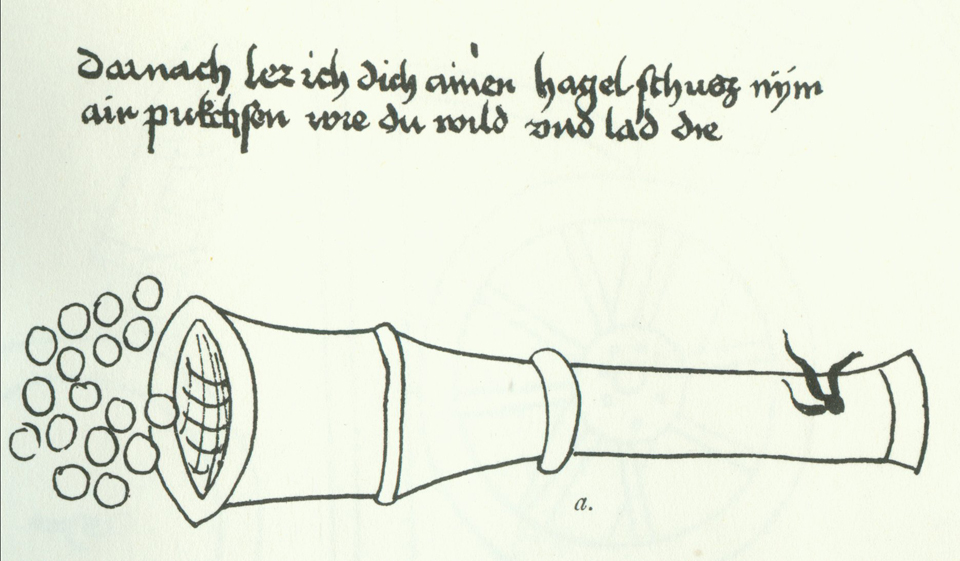 darnach lez ich dich ainen hagelschusz nÿm
ain pukchsen wie du wild vnd lad die
a.